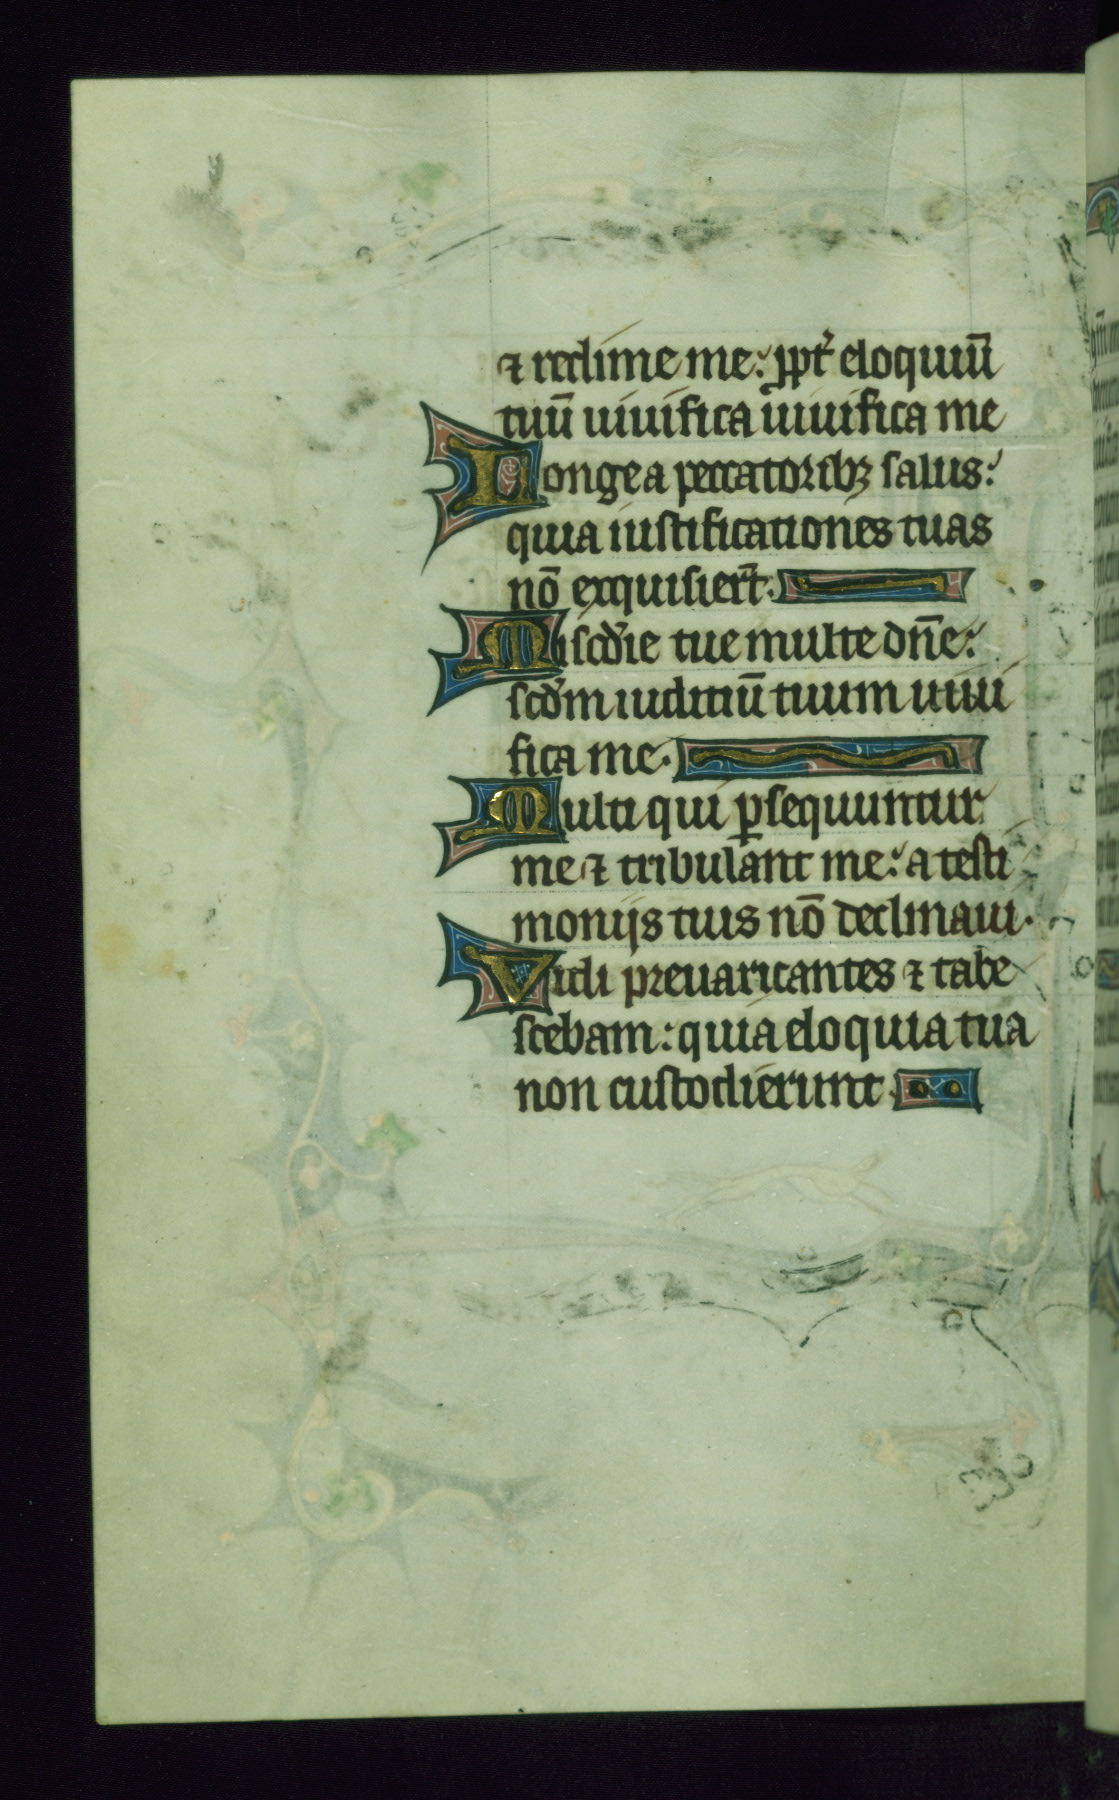 ⁊ redime me: ꝓpt̉ eloquiū
tuū uiuifica uiuifica me
Longe a peccatoribꝫ salus:
quia iustificationes tuas
nō exquisier̄t.
Miscd̉ie tue multe dn̄e:
scd̉m iuditiū tuum uiui
fica me.
Multi qui ꝑsequuntur
me ⁊ tribulant me: a testi
moniis tuis nō declinaui.
Vidi preuaricantes ⁊ tabe
scebam: quia eloquia tua
non custodierunt.